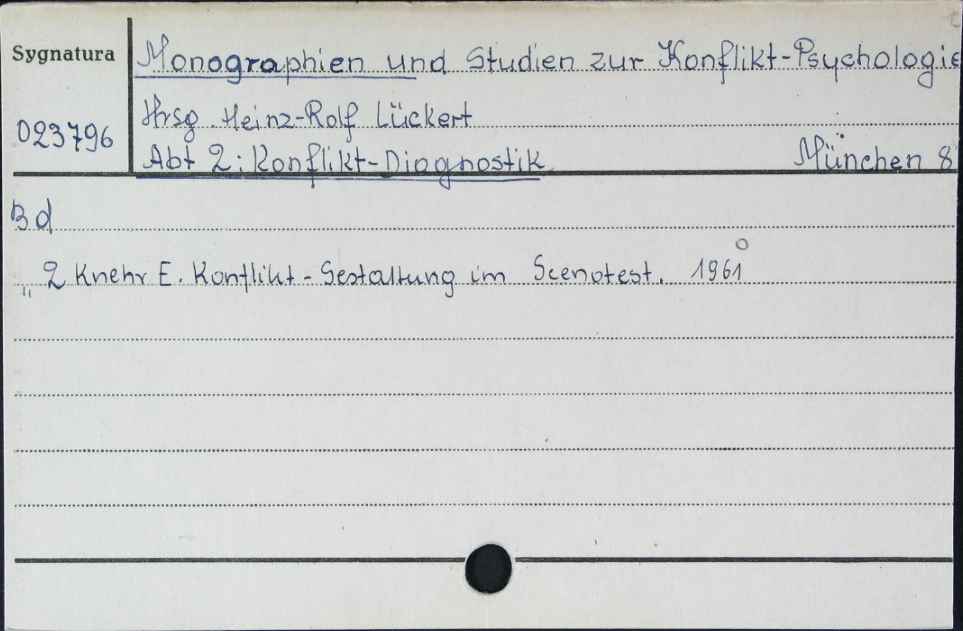 Sygnatura
Monographien und Studien zur Konflikt-Psychologie
Hrsg. Heinz-Rolf Lückert
023796
Abt 2: Konflikt-Diagnostik München 8°
Bd
2 Knehr E. Konflikt-Gestaltung im Scenotest. 1961